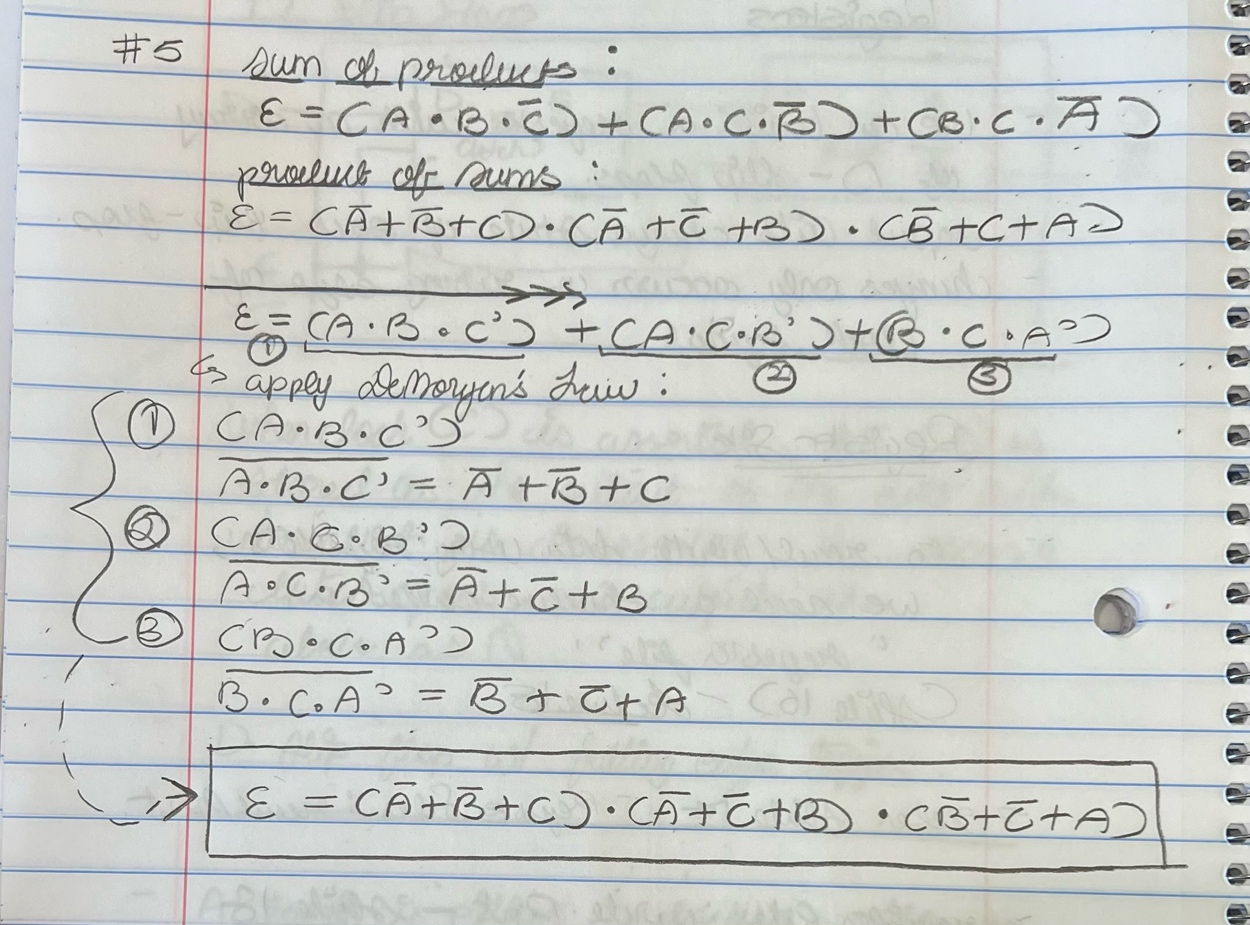 #5 sum of products :
ε = (A · B · C̅) + (A · C · B̅) + (B · C · A̅)
product of sums :
ε = (A̅ + B̅ + C) · (A̅ + C̅ + B) · (B̅ + C + A)
ε = (A · B · C') + (A · C · B') + (B · C · A')
① ② ③
↳ apply DeMorgan's Law :
① (A · B · C')
A̅ ·̅ B̅ ·̅ C̅'̅ = A̅ + B̅ + C
② (A · C · B')
A̅ ·̅ C̅ ·̅ B̅'̅ = A̅ + C̅ + B
③ (B · C · A')
B̅ ·̅ C̅ ·̅ A̅'̅ = B̅ + C̅ + A
ε = (A̅ + B̅ + C) · (A̅ + C̅ + B) · (B̅ + C̅ + A)